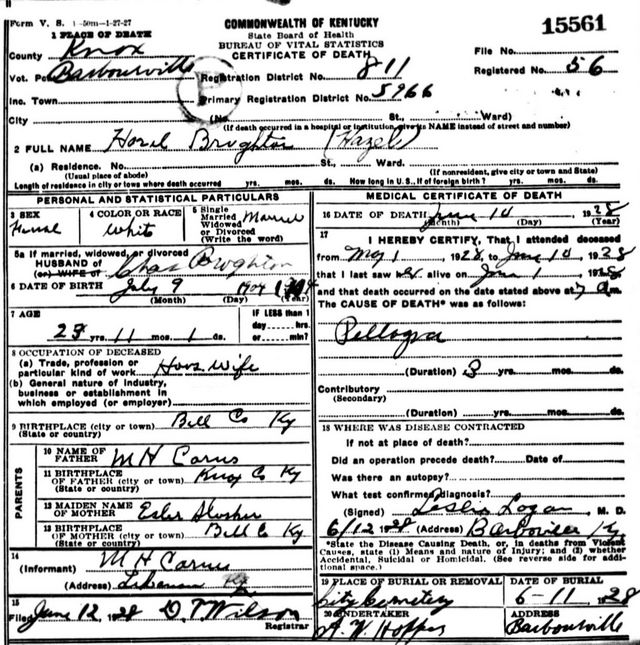 Form V. S. 1-50m-1-27-27
COMMONWEALTH OF KENTUCKY
State Board of Health
BUREAU OF VITAL STATISTICS
CERTIFICATE OF DEATH
15561
1 PLACE OF DEATH
County Knox
File No.
Vot. Pct Barbourville Registration District No. 811
Registered No. 56
Inc. Town Primary Registration District No. 5966
City (No. St., Ward)
(If death occurred in a hospital or institution, give its NAME instead of street and number)
2 FULL NAME Hozel Broghton (Hazel)
(a) Residence. No. St., Ward.
(Usual place of abode) (If nonresident, give city or town and State)
Length of residence in city or town where death occurred yrs. mos. ds. How long in U.S., if of foreign birth? yrs. mos. ds.
PERSONAL AND STATISTICAL PARTICULARS
3 SEX
4 COLOR OR RACE
5 Single
Married
Widowed
or Divorced
(Write the word)
White
5a If married, widowed, or divorced
HUSBAND of
(or) WIFE of Chas Broghton
6 DATE OF BIRTH July 9
(Month) (Day) (Year)
7 AGE
IF LESS than 1
day hrs.
or min.?
23 yrs. 11 mos. 1 ds.
8 OCCUPATION OF DECEASED
(a) Trade, profession or
particular kind of work Hous wife
(b) General nature of industry,
business or establishment in
which employed (or employer)
9 BIRTHPLACE (city or town) Bell Co Ky
(State or country)
PARENTS
10 NAME OF
FATHER M H Carns
11 BIRTHPLACE
OF FATHER (city or town) Knox Co Ky
(State or country)
12 MAIDEN NAME
OF MOTHER Ester Slusher
13 BIRTHPLACE
OF MOTHER (city or town) Bell Co Ky
(State or country)
14
(Informant) M H Carns
(Address) Ky
15
Filed June 12 1928 D. T Wilson
Registrar
MEDICAL CERTIFICATE OF DEATH
16 DATE OF DEATH June 10 1928
(Month) (Day) (Year)
17
I HEREBY CERTIFY, That I attended deceased
from May 1 1928, to June 10, 1928
that I last saw alive on June 1, 1928
and that death occurred on the date stated above at 7 am.
The CAUSE OF DEATH* was as follows:
Pellogra
(Duration) 3 yrs. mos. ds.
Contributory
(Secondary)
(Duration) yrs. mos. ds.
18 WHERE WAS DISEASE CONTRACTED
If not at place of death?
Did an operation precede death? Date of
Was there an autopsy?
What test confirmed diagnosis?
(Signed) Leslie Logan, M. D.
6/12 1928 (Address) Barboville Ky
*State the Disease Causing Death, or, in deaths from Violent
Causes, state (1) Means and nature of Injury; and (2) whether
Accidental, Suicidal or Homicidal. (See reverse side for addi-
tional space.)
19 PLACE OF BURIAL OR REMOVAL
City Cemetery
DATE OF BURIAL
6-11 1928
20 UNDERTAKER
A. W. Hopper
ADDRESS
Barbourville